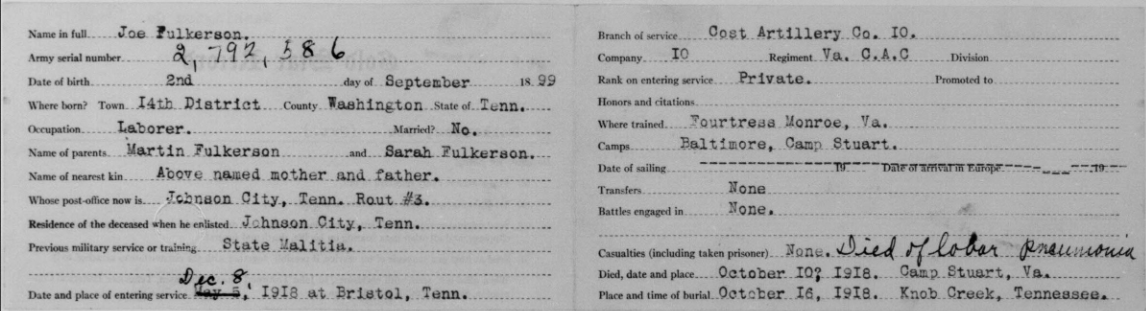 Name in full Joe Fulkerson.
Army serial number 2,792,586
Date of birth 2nd day of September 1899
Where born? Town I4th District County Washington State of Tenn.
Occupation Laborer. Married? No.
Name of parents Martin Fulkerson and Sarah Fulkerson.
Name of nearest kin Above named mother and father.
Whose post-office now is Johnson City, Tenn. Rout #3.
Residence of the deceased when he enlisted Johnson City, Tenn.
Previous military service or training State Malitia.
Dec. 8,
Date and place of entering service May 5, I9I8 at Bristol, Tenn.
Branch of service Cost Artillery Co. IO.
Company IO Regiment Va. C.A.C Division
Rank on entering service Private. Promoted to
Honors and citations
Where trained Fourtress Monroe, Va.
Camps Baltimore, Camp Stuart.
Date of sailing 19 Date of arrival in Europe 19
Transfers None
Battles engaged in None.
Casualties (including taken prisoner) None. Died of lobar pneumonia
Died, date and place October IO? I9I8. Camp Stuart, Va.
Place and time of burial October I6, I9I8. Knob Creek, Tennessee.